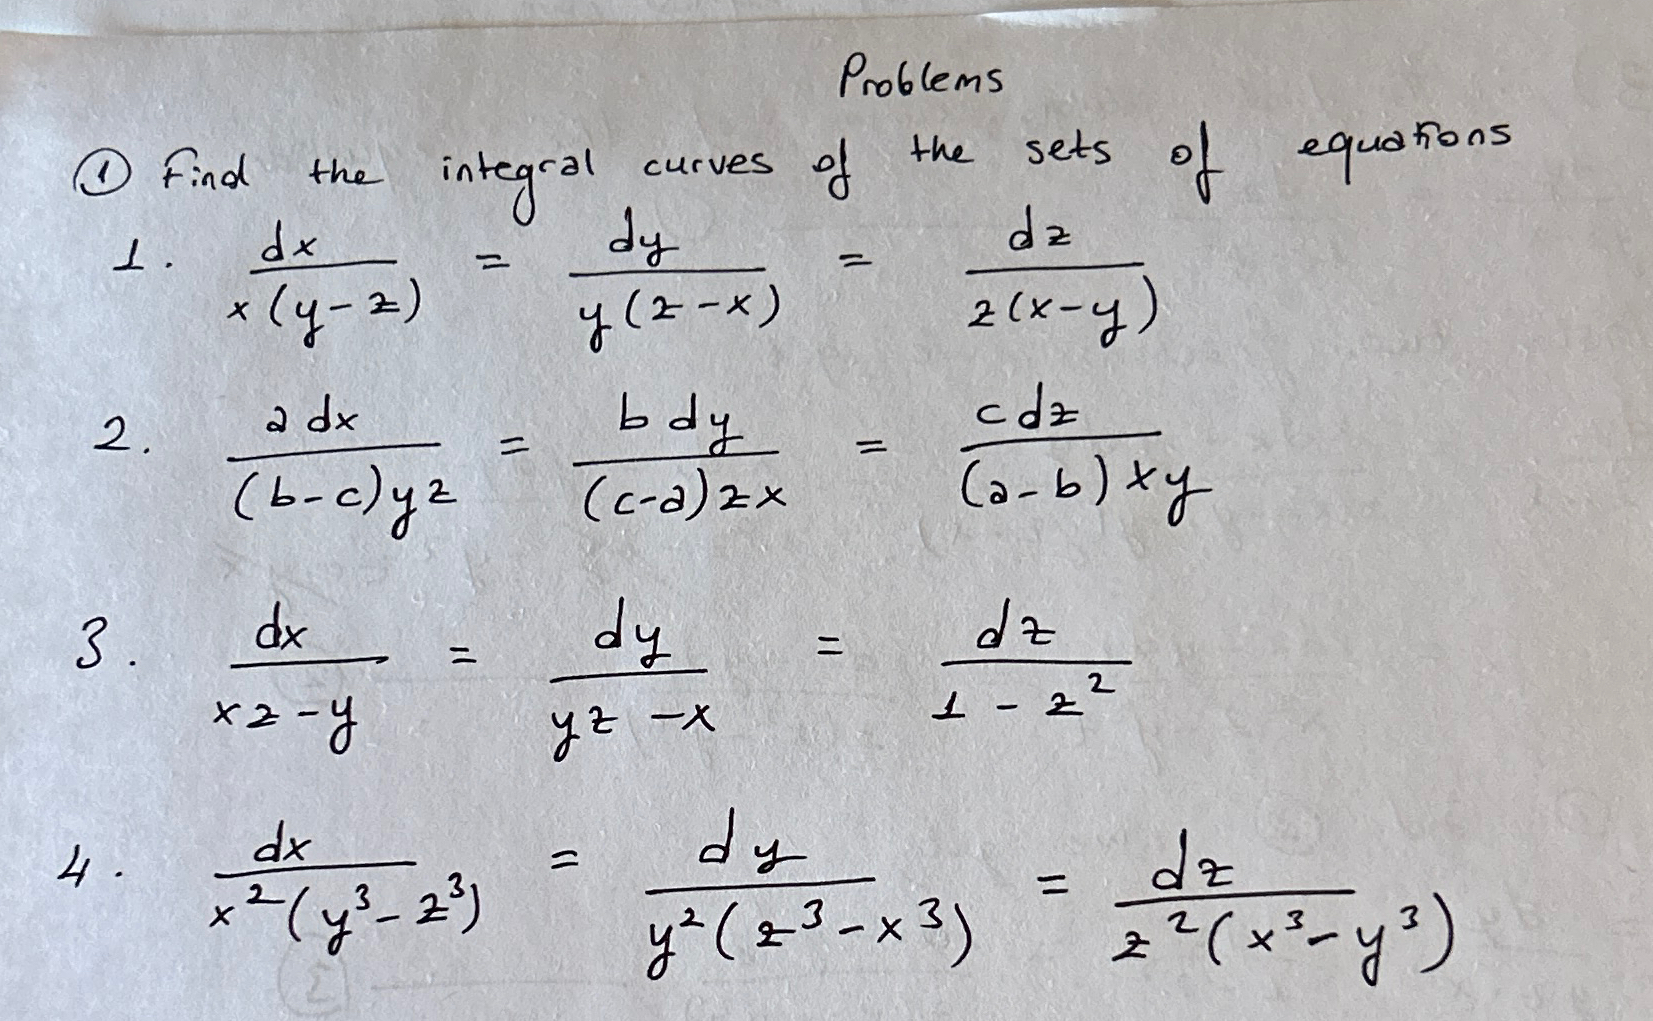 Problems
① Find the integral curves of the sets of equations
1. dx/x(y-z) = dy/y(z-x) = dz/z(x-y)
2. a dx/(b-c)yz = b dy/(c-a)zx = c dz/(a-b)xy
3. dx/xz-y = dy/yz-x = dz/1-z²
4. dx/x²(y³-z³) = dy/y²(z³-x³) = dz/z²(x³-y³)